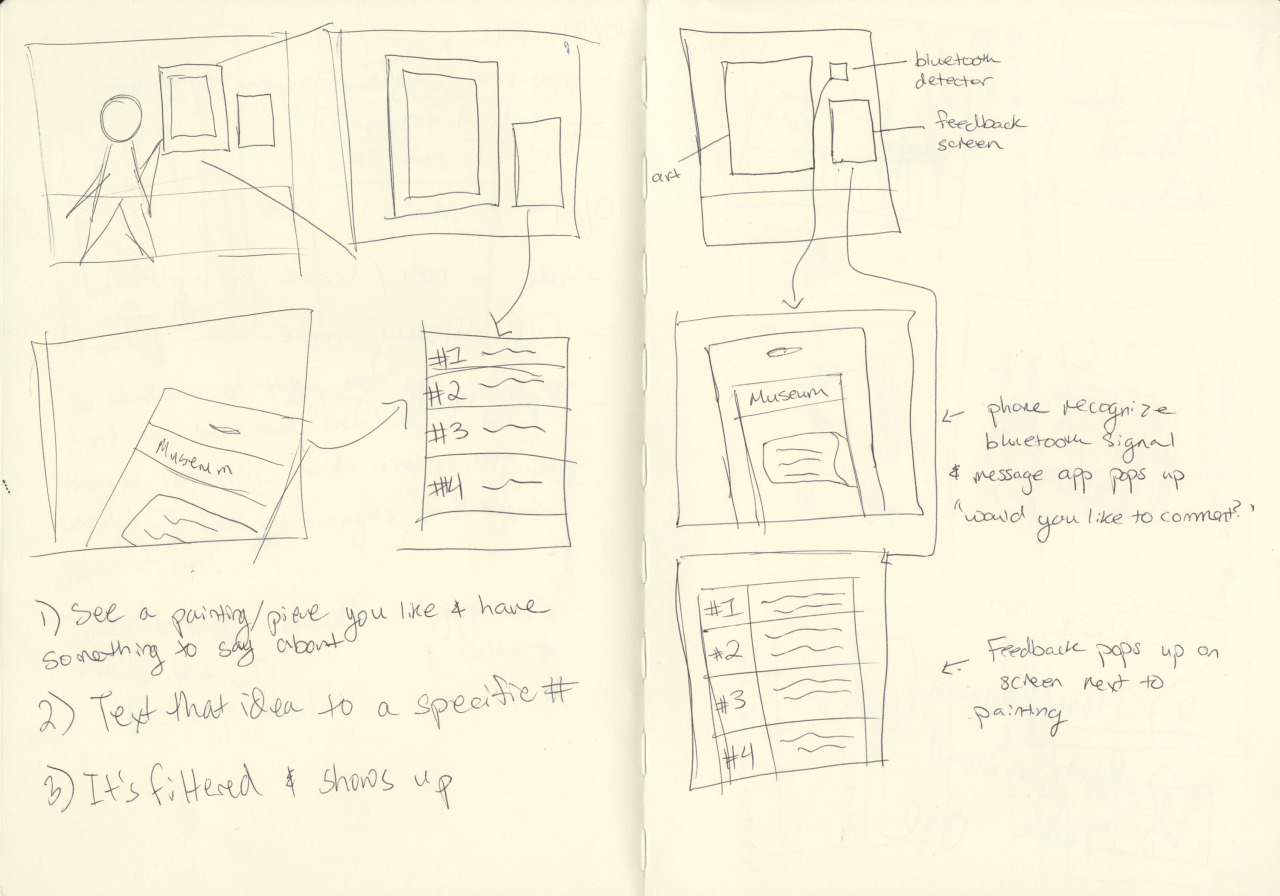 Museum
#1
#2
#3
#4
1) See a painting/piece you like & have
something to say about
2) Text that idea to a specific #
3) It's filtered & shows up
bluetooth
detector
feedback
screen
art
Museum
phone recognize
bluetooth signal
& message app pops up
"would you like to comment?"
#1
#2
#3
#4
Feedback pops up on
screen next to
painting